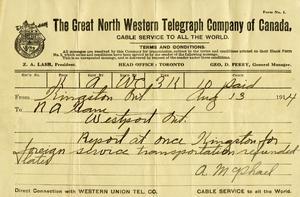 Form No. 1.
The Great North Western Telegraph Company of Canada.
CABLE SERVICE TO ALL THE WORLD.
TERMS AND CONDITIONS.
Z. A. LASH, President.
HEAD OFFICE: TORONTO
GEO. D. PERRY, General Manager.
3k 10 Paid
From Kingston Ont Aug 13 1914
To
Westport Ont.
Report at once Kingston for
foreign service transportation refunded
later
A. McPhail
Direct Connection with WESTERN UNION TEL. CO.
CABLE SERVICE to all the WORLD